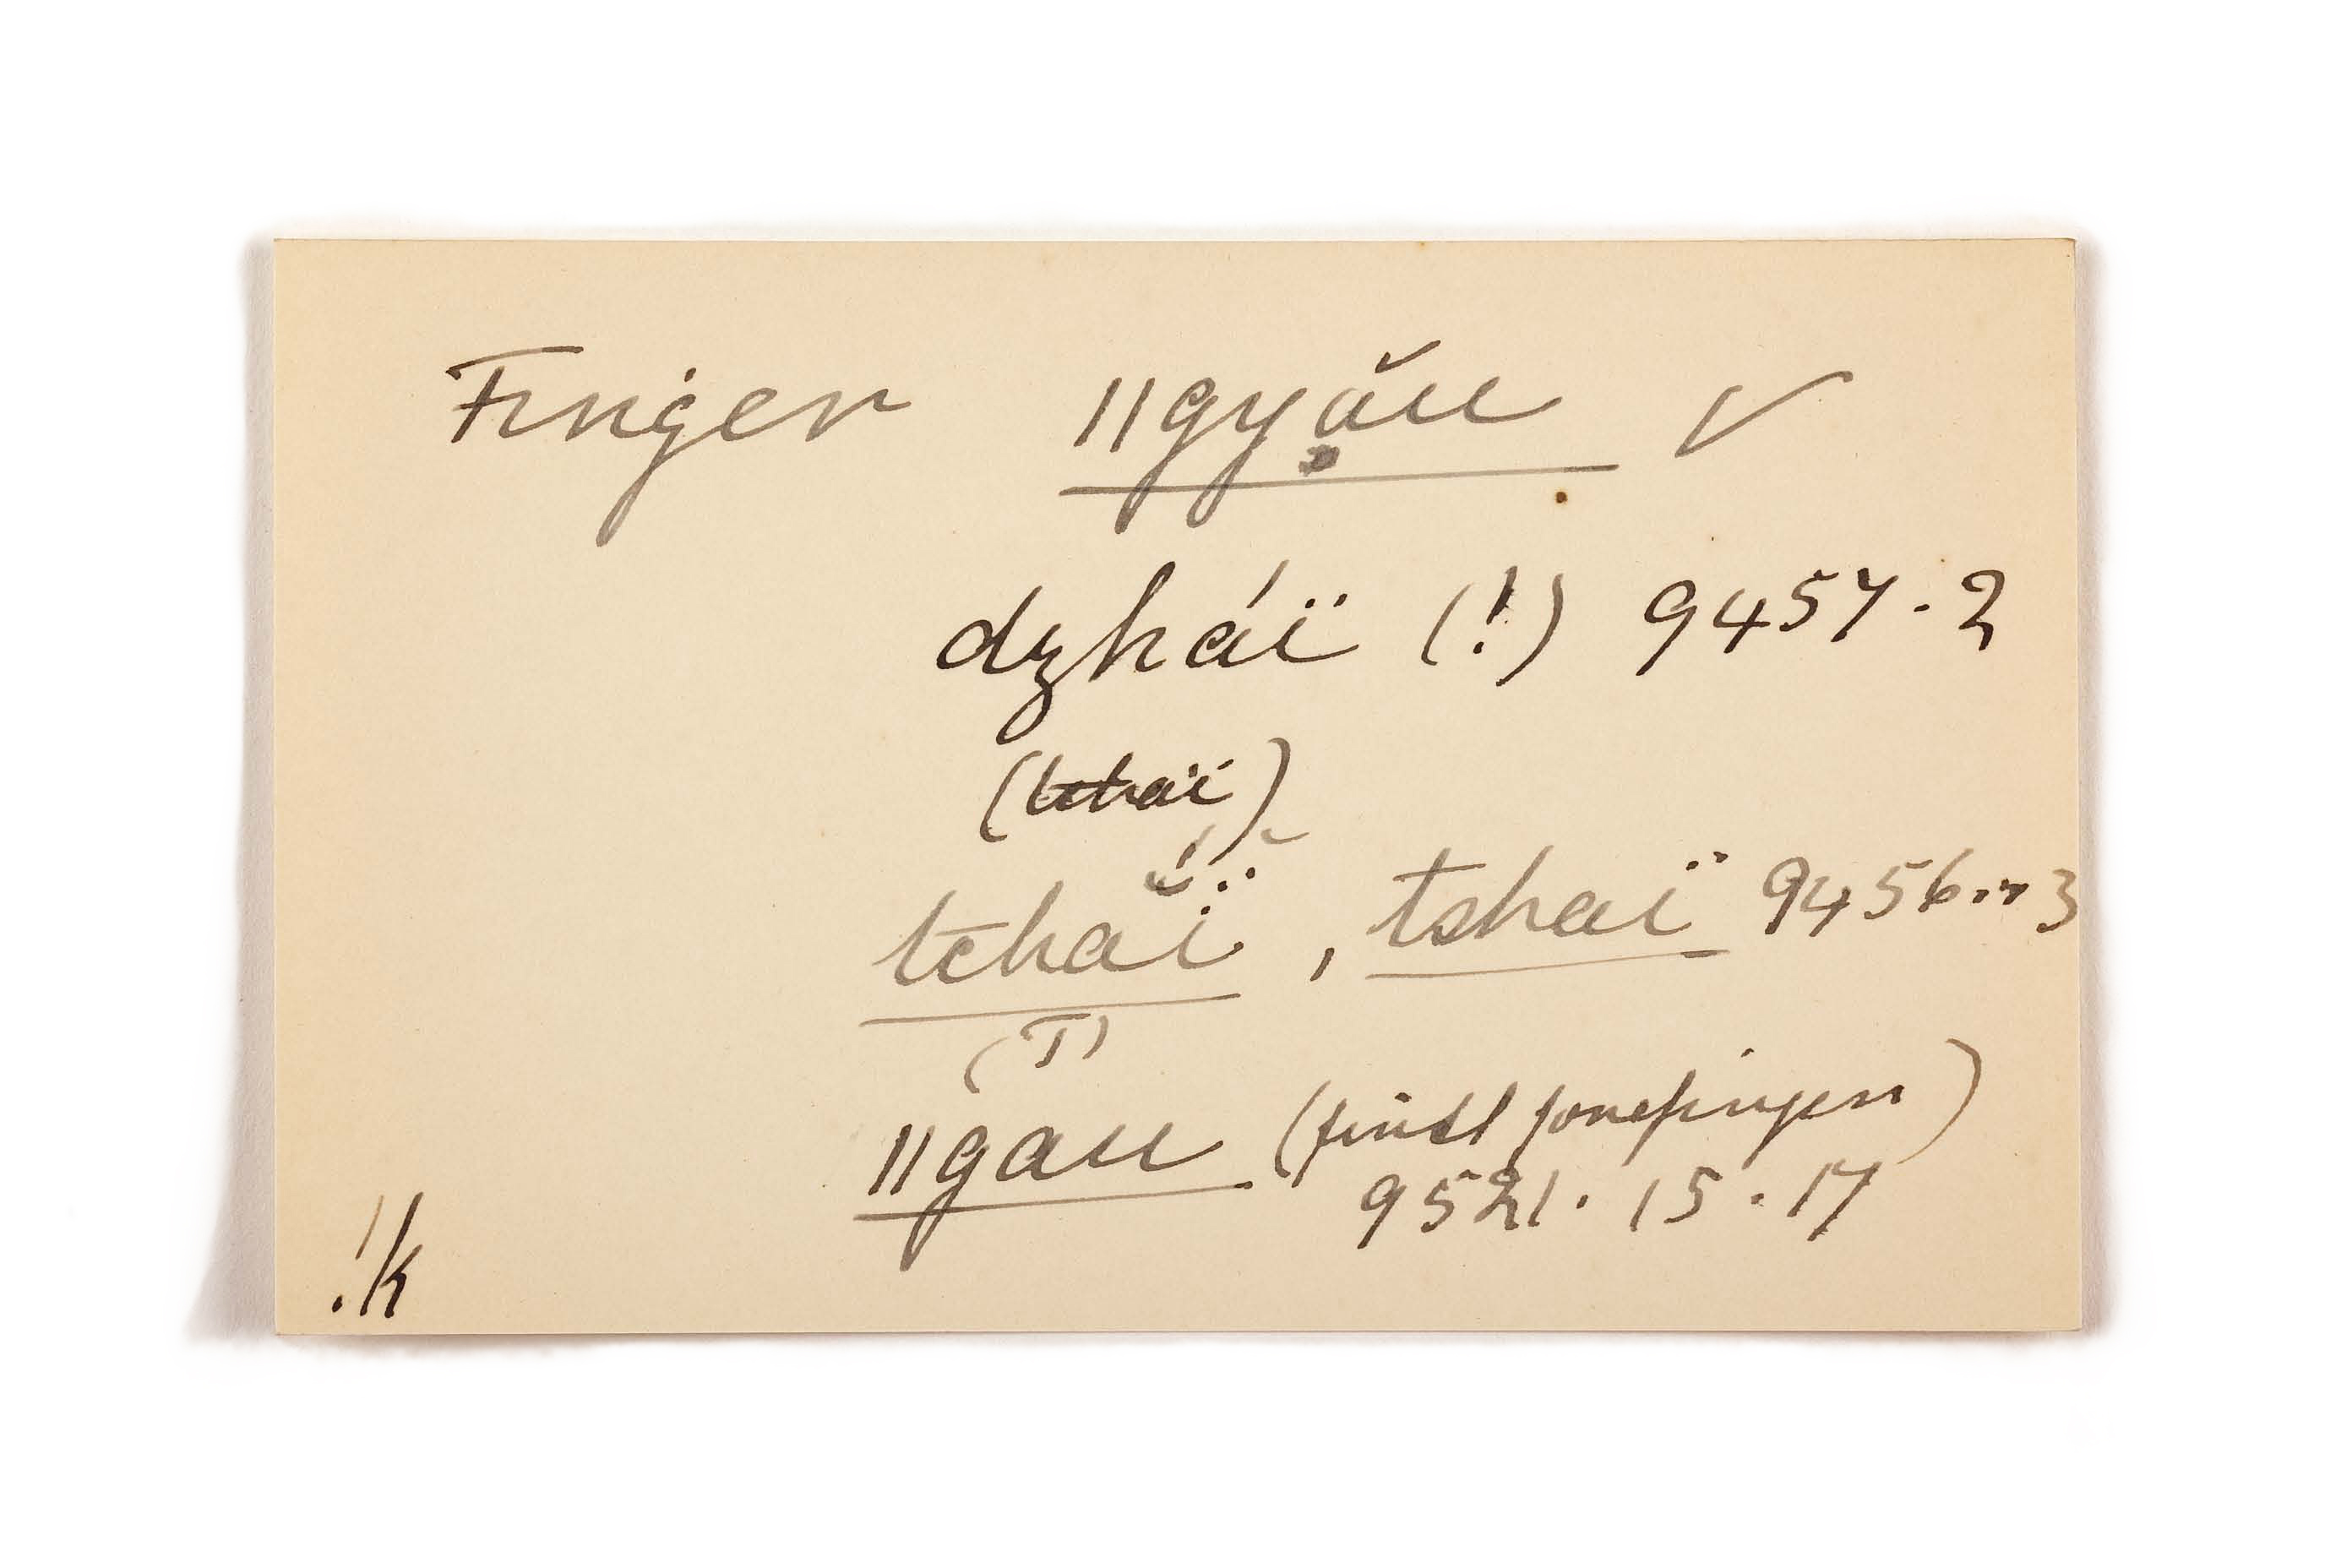 Finger ǁgyǎu √
dzháï (!) 9457.2
(tchaï)
tchǎï, tshaï 9456 .. 3
(T)
ǁgau (first forefinger)
9521. 15. 17
!k